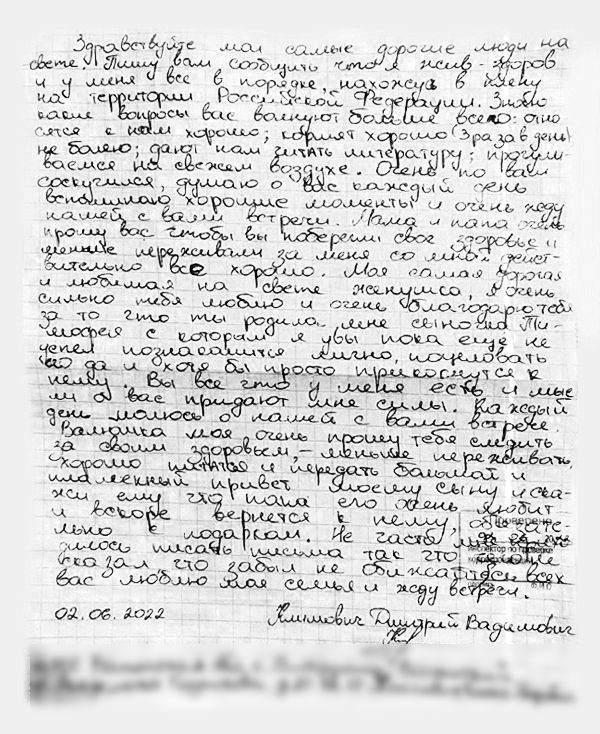 Здравствуйте мои самые дорогие люди на
свете. Пишу вам сообщить что я жив-здоров
и у меня все в порядке, нахожусь в плену
на территории Российской Федерации. Знаю
какие вопросы вас волнуют больше всего: отно
сятся к нам хорошо; кормят хорошо (3 раза в день)
не болею; дают нам читать литературу; прогули-
ваемся на свежем воздухе. Очень по вам
соскучился, думаю о вас каждый день
вспоминаю хорошие моменты и очень жду
нашей с вами встречи. Мама и папа очень
прошу вас чтобы вы поберегли своё здоровье и
меньше переживали за меня со мной дейст-
вительно все хорошо. Моя самая дорогая
и любимая на свете женушка, я очень
сильно тебя люблю и очень благодарю тебя
за то что ты родила мне сыночка Ти-
мофея с которым я увы пока ещё не
успел познакомится лично, поцеловать
его да и хотя бы просто прикоснутся к
нему. Вы все что у меня есть и мыс
ли о вас придают мне силы. Каждый
день молюсь о нашей с вами встрече.
моя очень прошу тебя следить
за своим здоровьем, - меньше переживать,
хорошо питатся и передать большой и
пламенный привет моему сыну и ска-
жи ему что папа его очень любит
и вскоре вернется к нему, обязате-
льно с подарком. Не часто мне
писать письма так что не
сказал, что забыл не обижайтеся всех
вас люблю моя семья и жду встречи.
Проверено
Инспектор по проверке
02.06.2022
Климович Дмитрий Вадимович